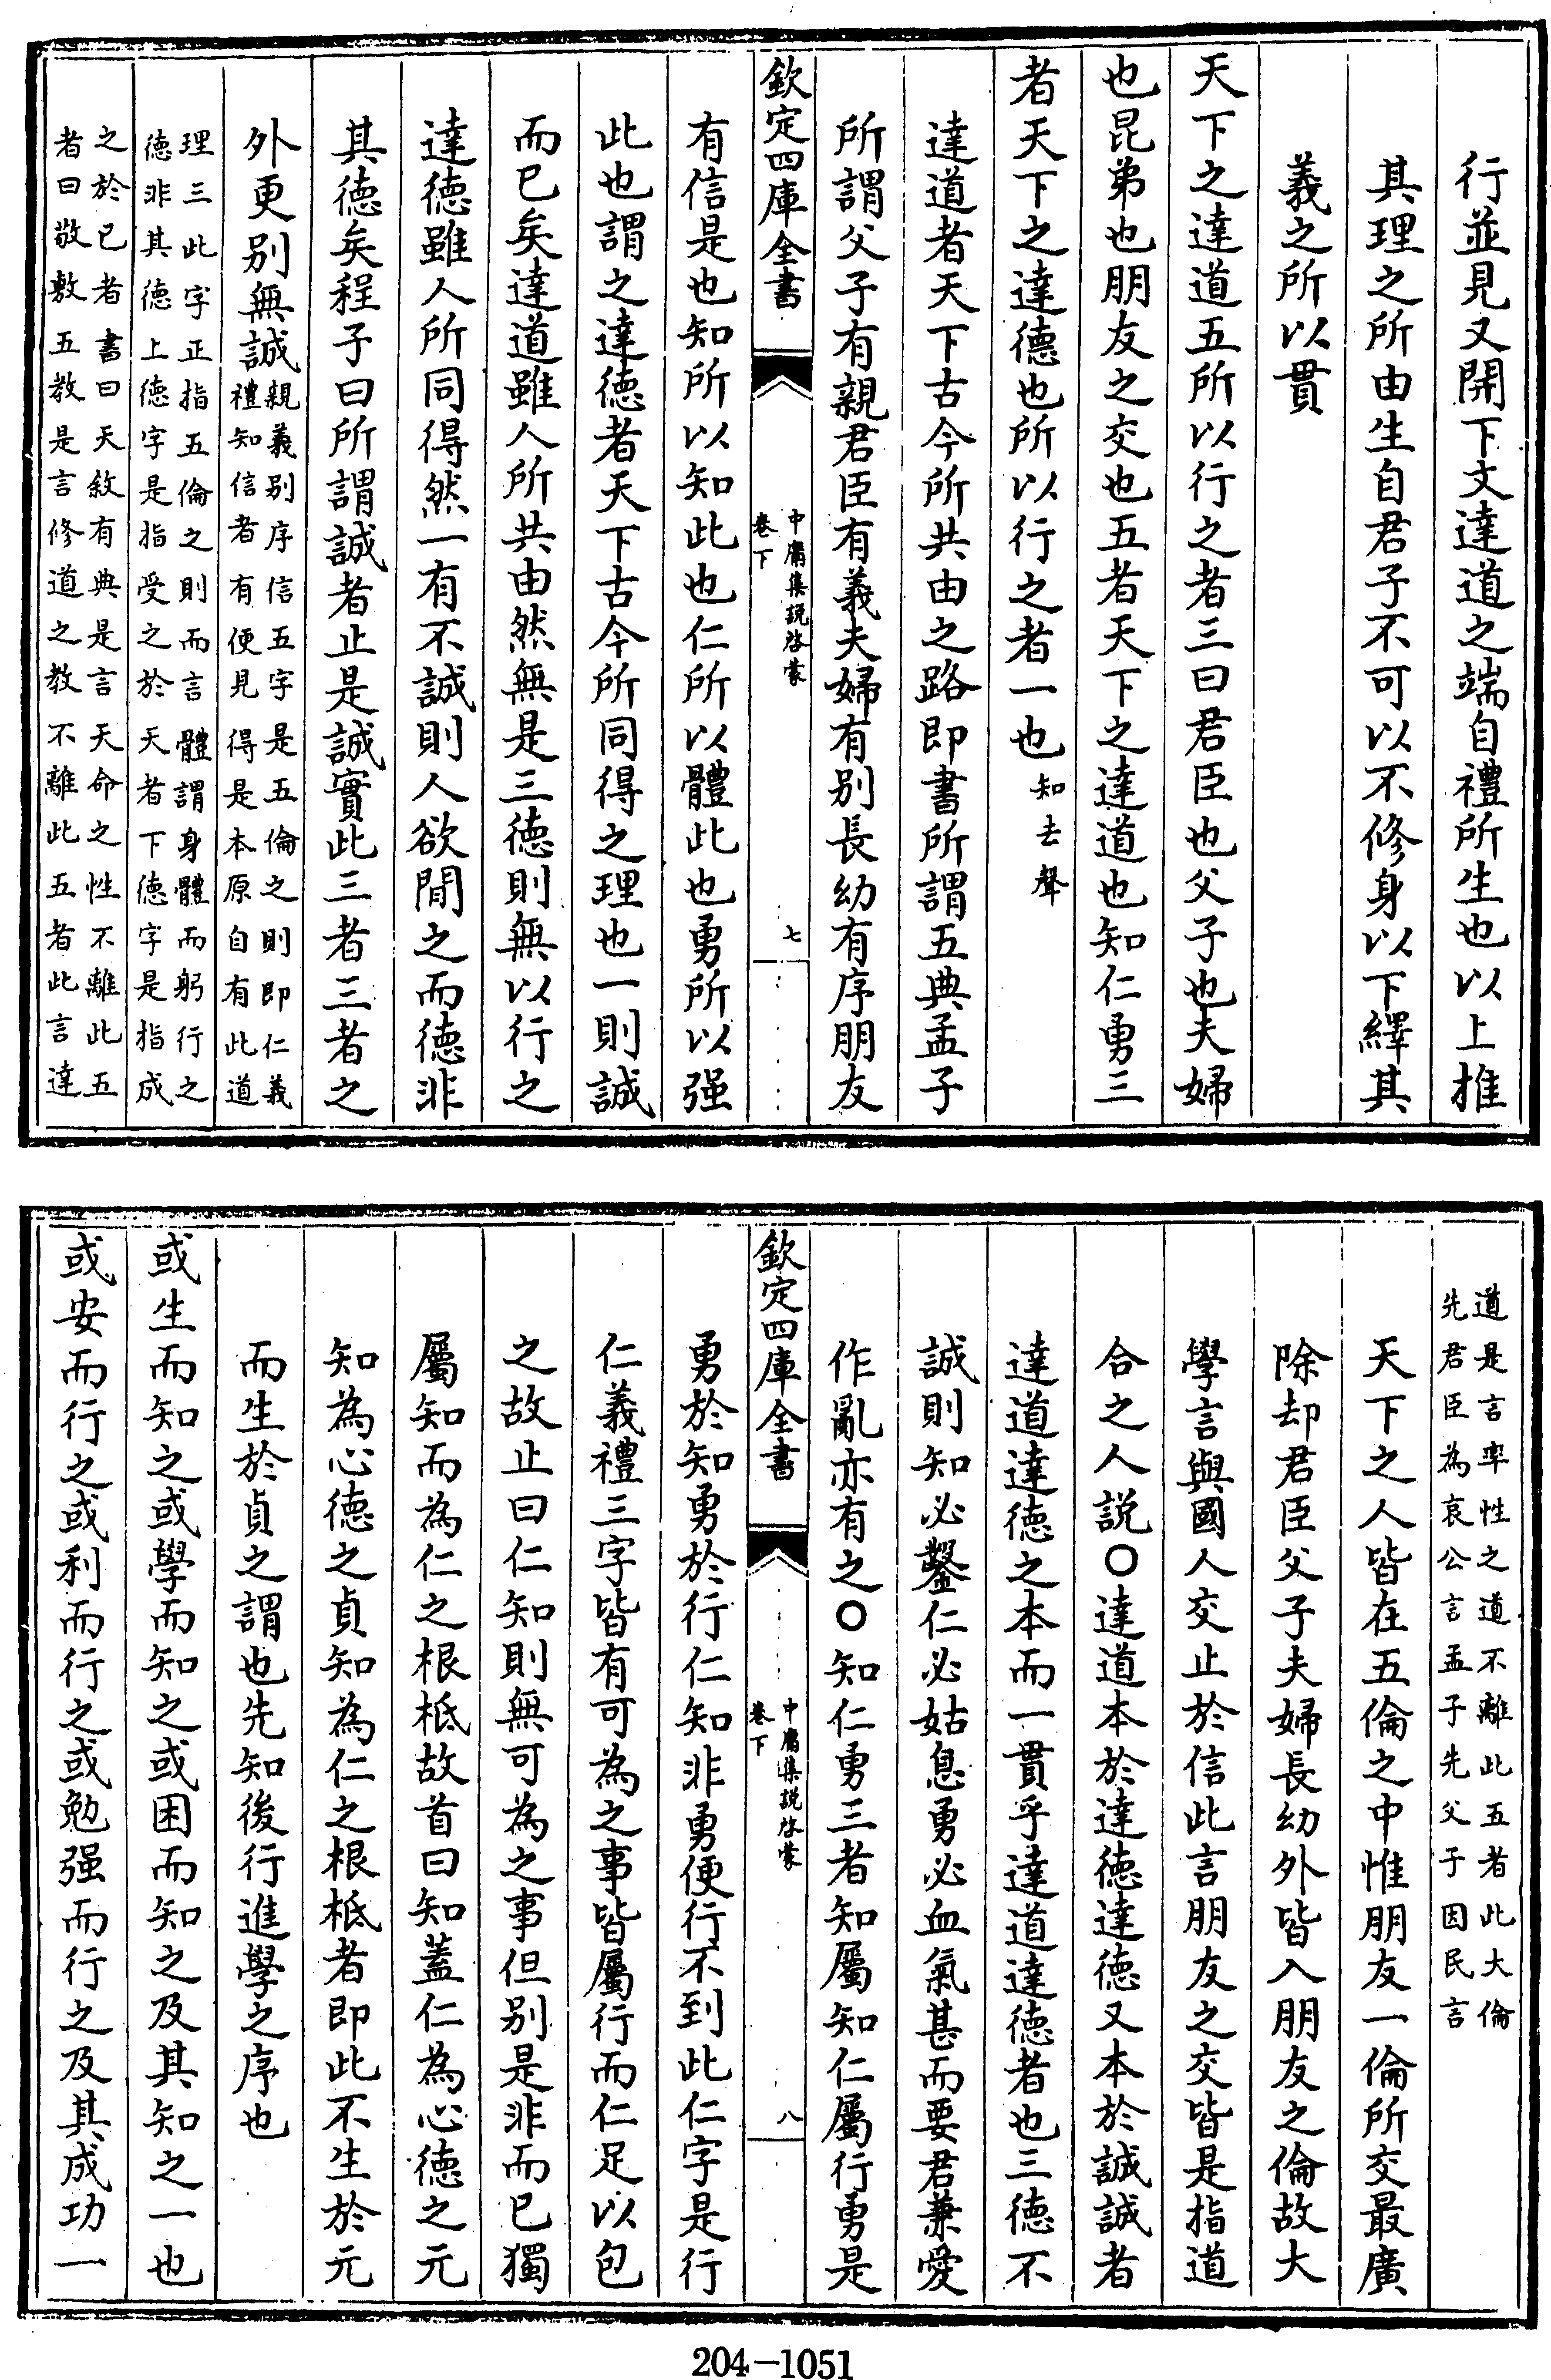 行並見又開下文達道之端自禮所生也以上推
其理之所由生自君子不可以不修身以下繹其
義之所以貫
天下之達道五所以行之者三曰君臣也父子也夫婦
也昆弟也朋友之交也五者天下之達道也知仁勇三
者天下之達德也所以行之者一也知去聲
達道者天下古今所共由之路即書所謂五典孟子
所謂父子有親君臣有義夫婦有别長幼有序朋友
欽定四庫全書
中庸集說啓蒙
卷下
七
有信是也知所以知此也仁所以體此也勇所以强
此也謂之達德者天下古今所同得之理也一則誠
而已矣達道雖人所共由然無是三德則無以行之
達德雖人所同得然一有不誠則人欲間之而德非
其德矣程子曰所謂誠者止是誠實此三者三者之
外更别無誠
親義别序信五字是五倫之則即仁義
禮知信者有便見得是本原自有此道
理三此字正指五倫之則而言體謂身體而躬行之
德非其德上德字是指受之於天者下德字是指成
之於已者書曰天敘有典是言天命之性不離此五
者曰敬敷五教是言修道之教不離此五者此言達
道是言率性之道不離此五者此大倫
先君臣為哀公言孟子先父子因民言
天下之人皆在五倫之中惟朋友一倫所交最廣
除却君臣父子夫婦長幼外皆入朋友之倫故大
學言與國人交止於信此言朋友之交皆是指道
合之人說○達道本於達德達德又本於誠誠者
達道達德之本而一貫乎達道達德者也三德不
誠則知必鑿仁必姑息勇必血氣甚而要君兼愛
作亂亦有之○知仁勇三者知屬知仁屬行勇是
欽定四庫全書
中庸集說啓蒙
卷下
八
勇於知勇於行仁知非勇便行不到此仁字是行
仁義禮三字皆有可為之事皆屬行而仁足以包
之故止曰仁知則無可為之事但别是非而已獨
屬知而為仁之根柢故首曰知蓋仁為心德之元
知為心德之貞知為仁之根柢者即此不生於元
而生於貞之謂也先知後行進學之序也
或生而知之或學而知之或困而知之及其知之一也
或安而行之或利而行之或勉强而行之及其成功一
204-1051